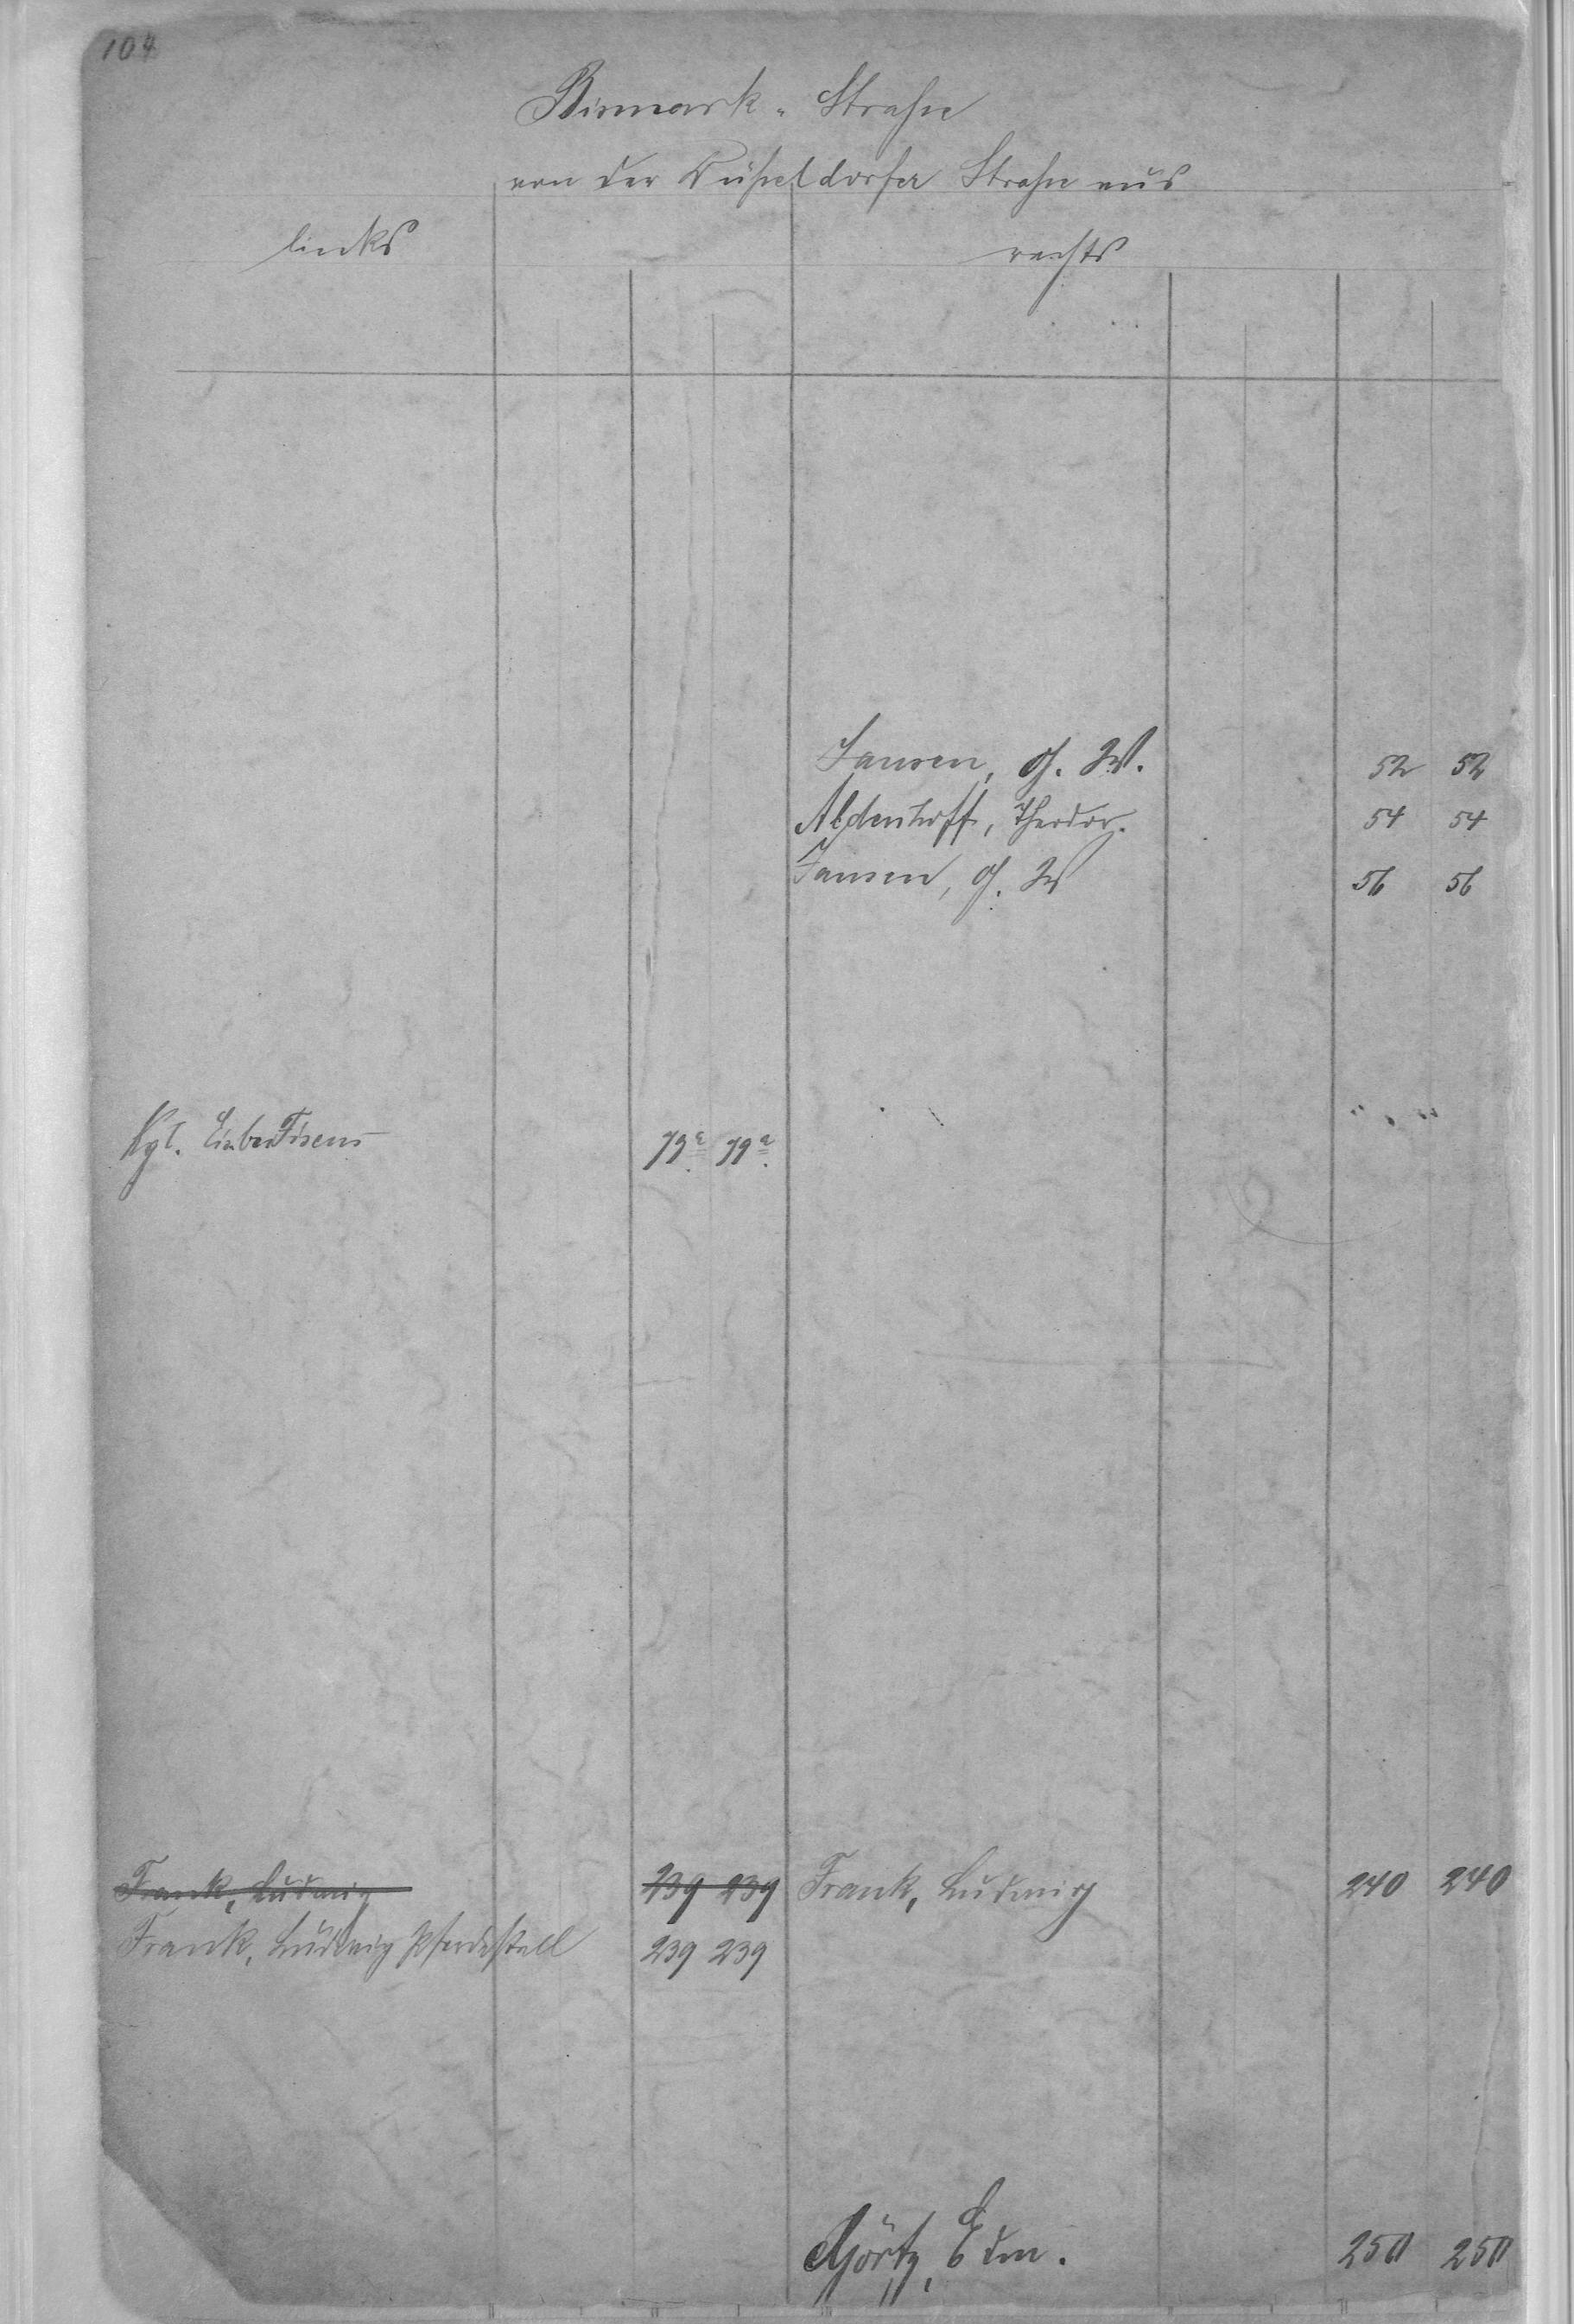 104
Bismark-Straße
von der Düßeldorfer Straße aus
links rechts
Jansen, G. W. 52 52
Aldenhoff, Theodor. 54 54
Jansen, G. W 56 56
Kgl. 79a 79a
Frank, Ludwig 239 239 Frank, Ludwig 240 240
Frank, Ludwig Pferdestall 239 239
Görtz, Edm. 250 250